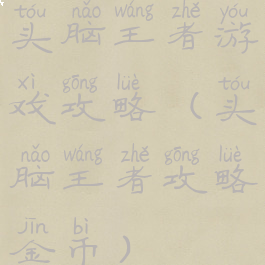 tóu nǎo wáng zhě yóu
头脑王者游
xì gōng lüè tóu
戏攻略(头
nǎo wáng zhě gōng lüè
脑王者攻略
jīn bì
金币)